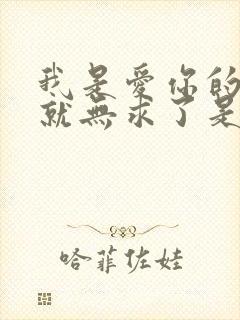 我是愛你的
就無求了是
哈菲佐娃